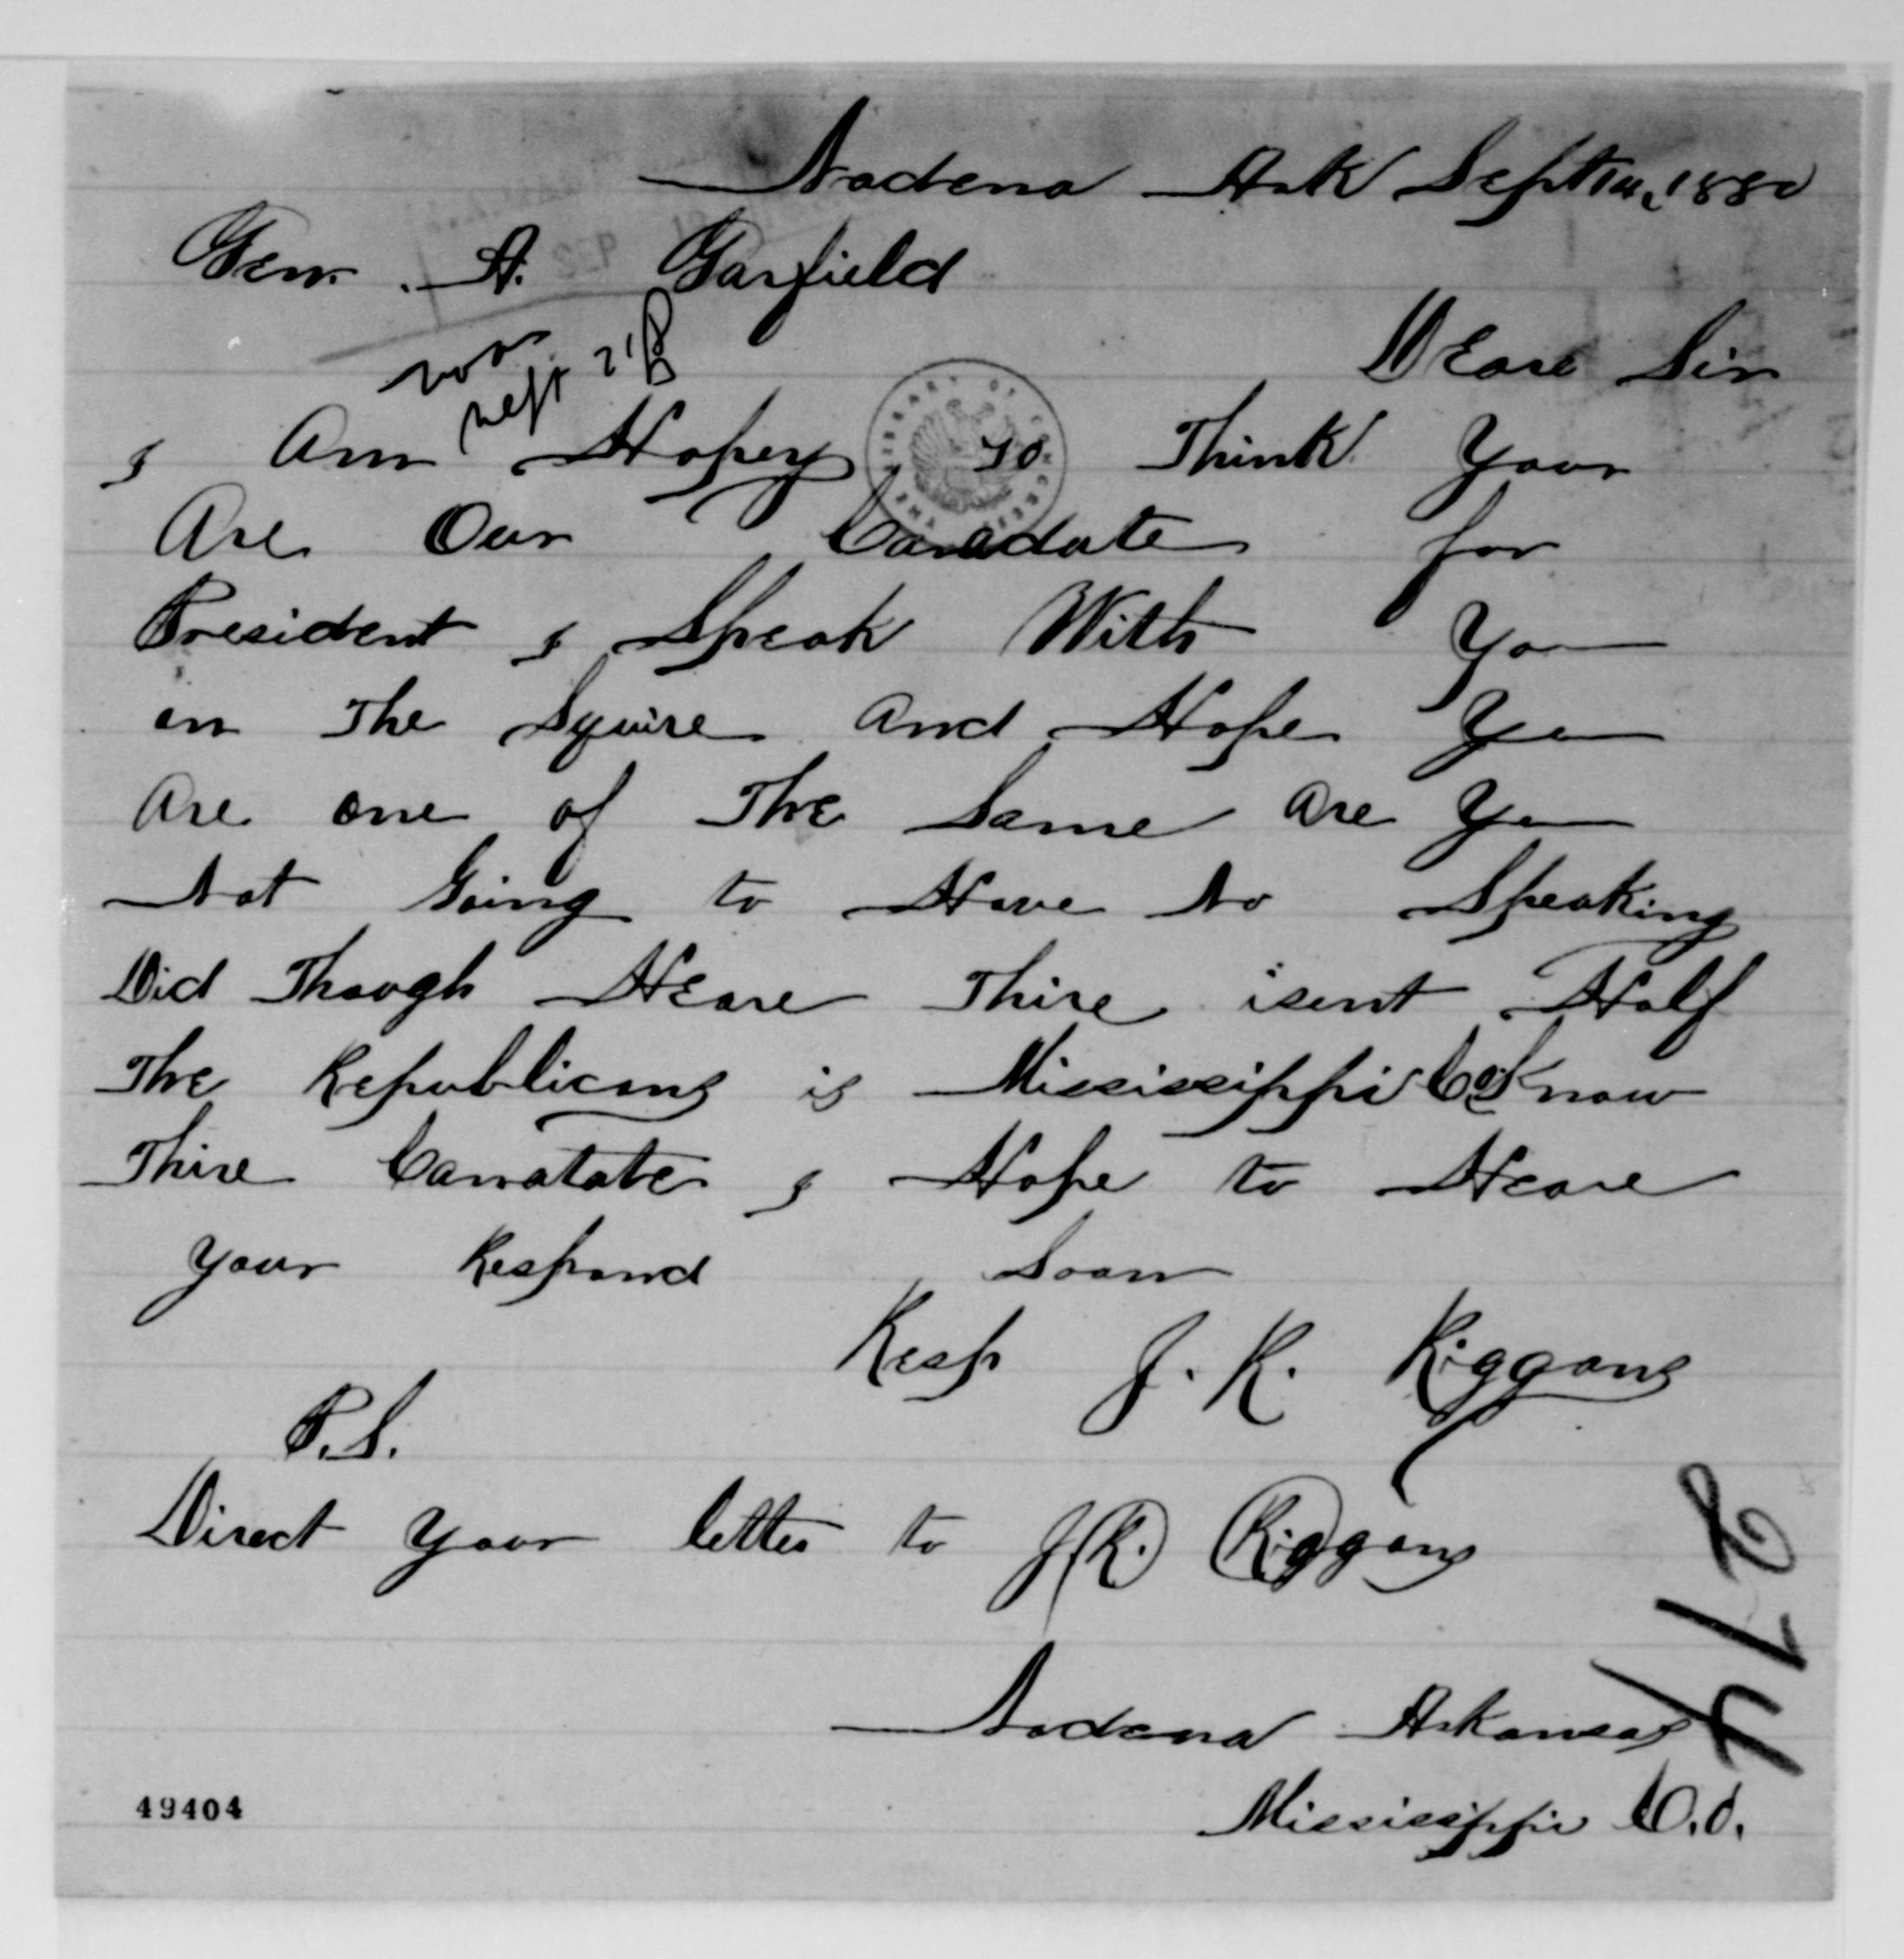 Nodena Ark Sept 14, 1880
Gen. A. Garfield
Sept 21
Deare Sir
I Am Hopey to Think Your
Are Our Canadate for
President I Speak With You
on The Squire and Hope You
Are one of The Same Are You
Not Going to Have No Speaking
Did Though Heare Thire isent Half
The Republicans is Mississippi Co Know
Thire Canatate I Hope to Heare
Your Respond Soon
Resp J. R. Riggans
P.S.
Direct Your letter to J. R. Riggans
Nodena Arkansas
Mississippi Co.
49404
214
LIBRARY OF CONGRESS